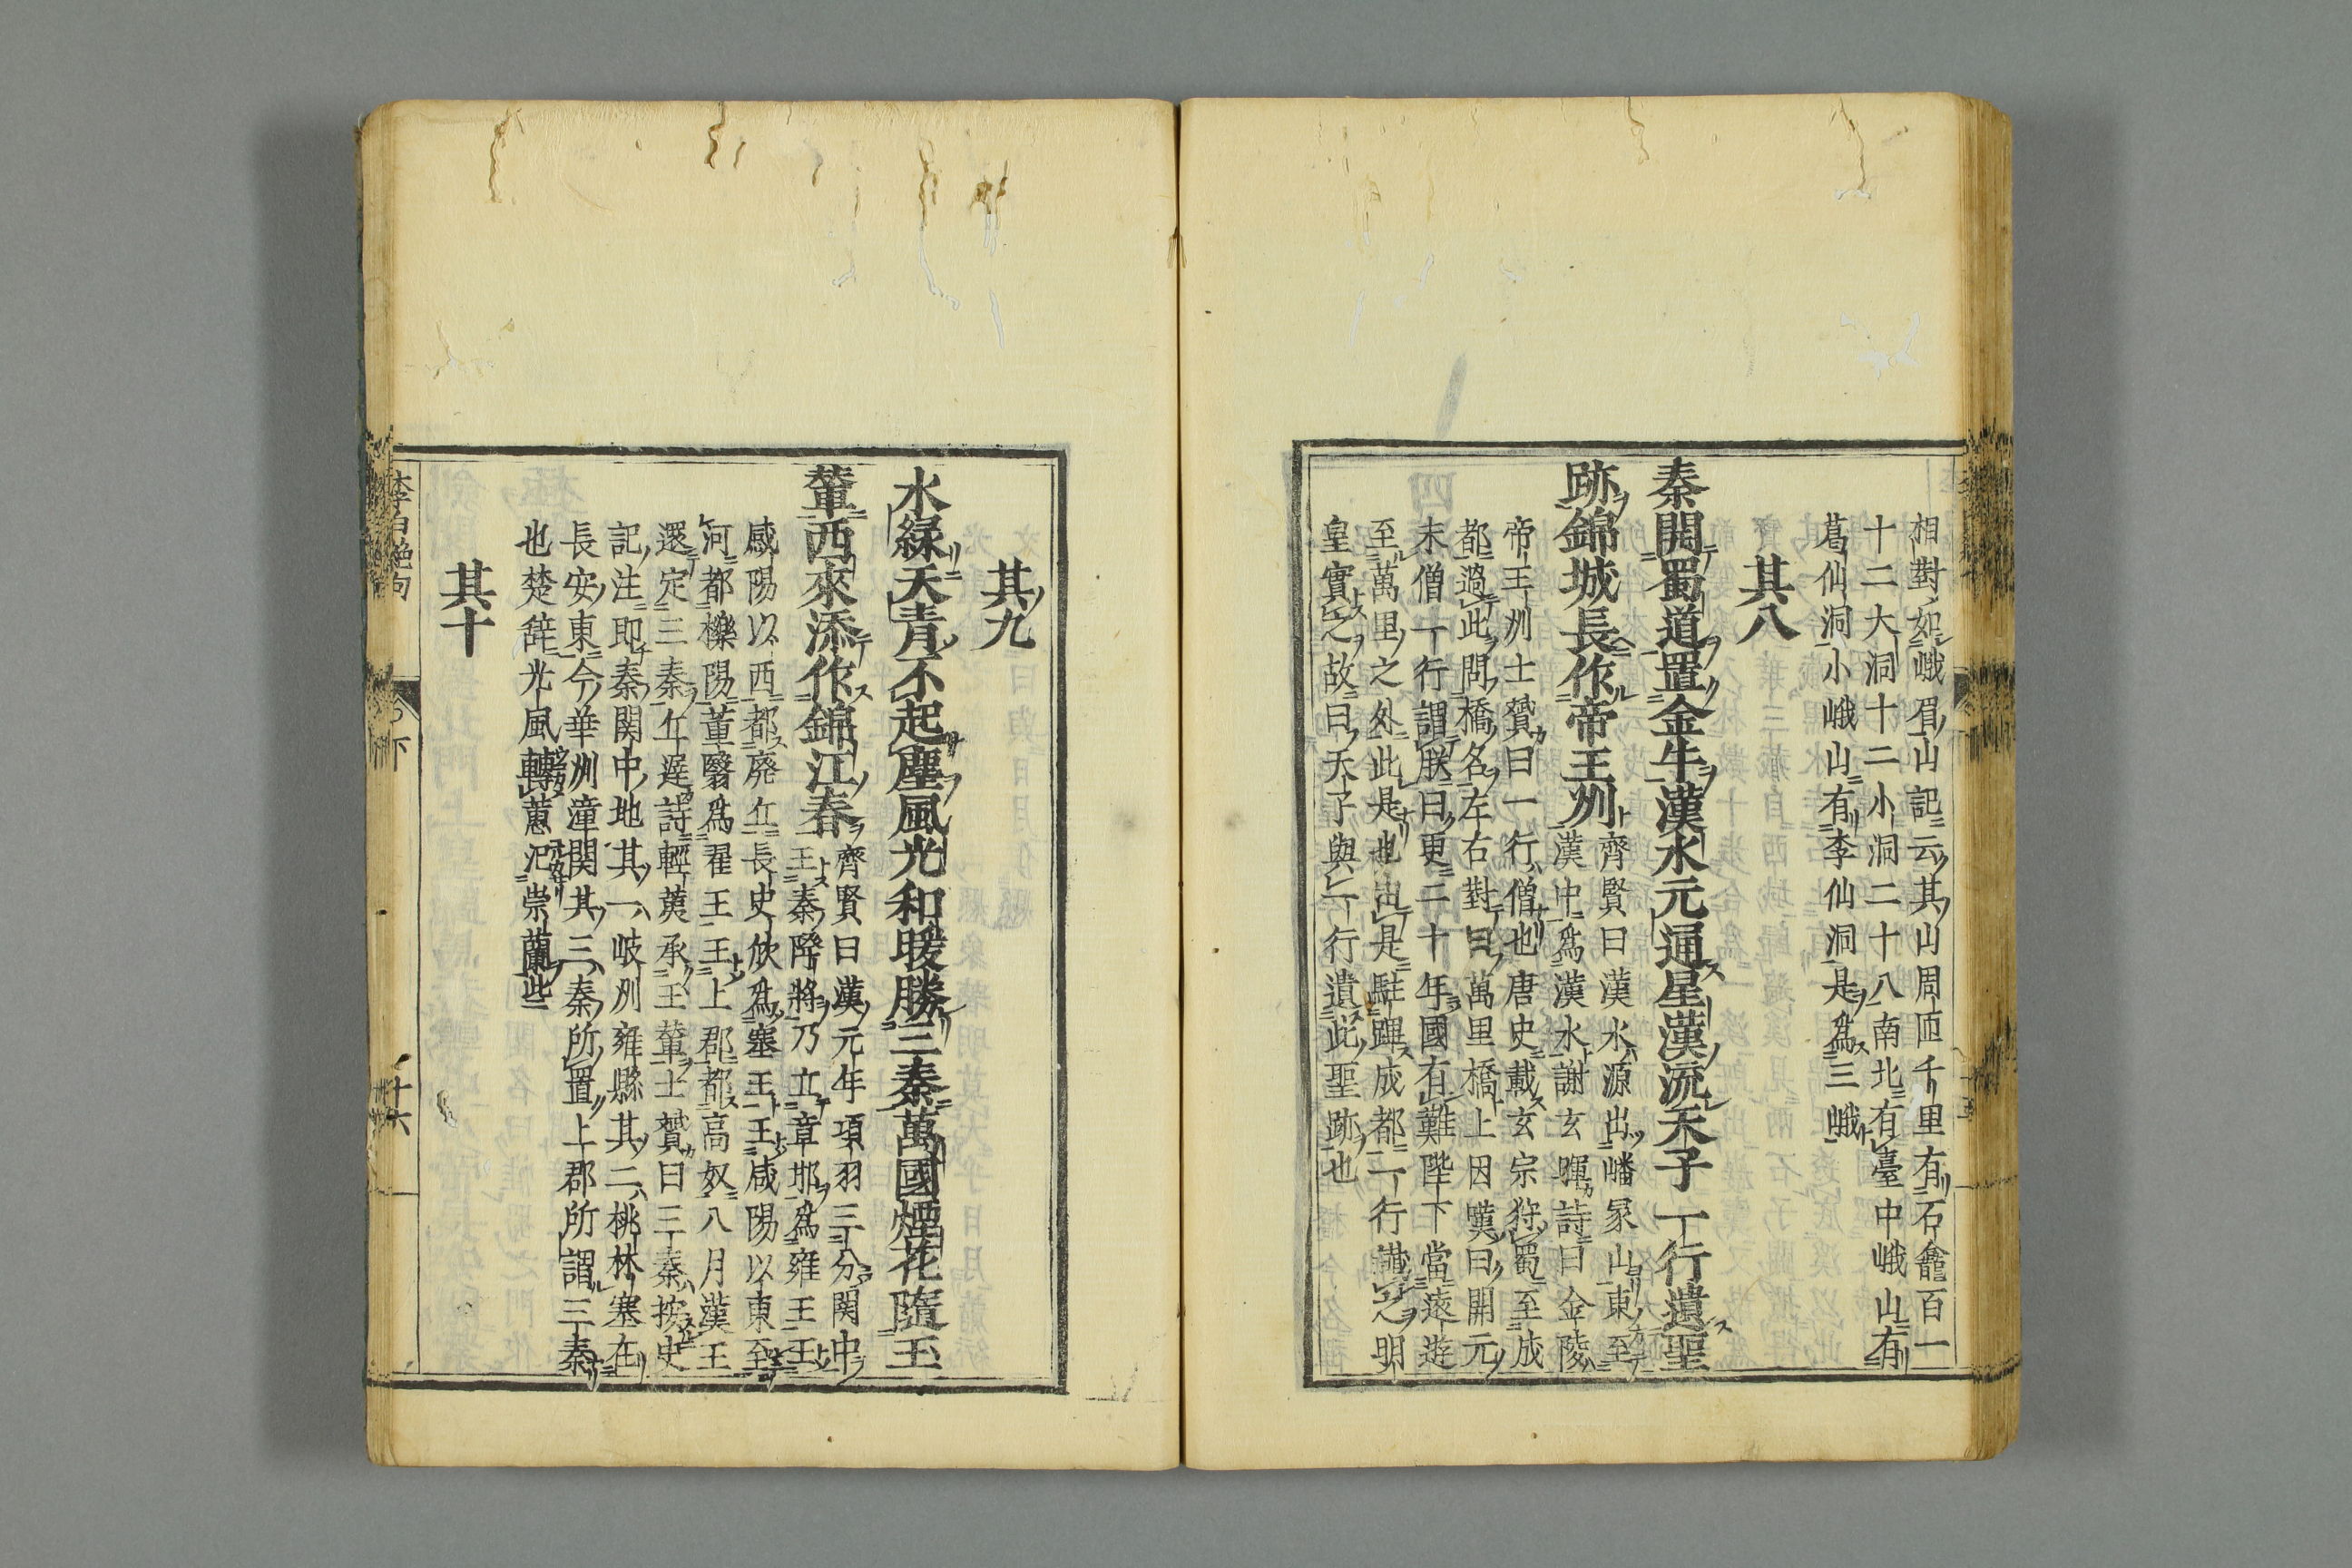 相對如峨眉山記云其山周匝千里有石龕百一
十二大洞十二小洞二十八南北有臺中峨山有
葛仙洞小峨山有李仙洞是為三峨
其八
秦開蜀道置金牛漢水元通星漢流天子一行遺聖
跡錦城長作帝王州
齊賢曰漢水源出嶓冢山東至
漢中為漢水謝玄暉詩曰金陵
帝王州士贇曰一行僧也唐史載玄宗狩蜀至成
都過此問橋名左右對曰萬里橋上因嘆曰開元
末僧一行謂朕曰更二十年國有難陛下當遠遊
至萬里之外此是也由是駐蹕成都一行讖之明
皇實之故曰天子與一行遺此聖跡也
其九
水綠天青不起塵風光和暖勝三秦萬國煙花隨玉
輦西來添作錦江春
齊賢曰漢元年項羽三分關中
王秦降將乃立章邯為雍王王
咸陽以西都廢丘長史欣為塞王王咸陽以東至
河都櫟陽董翳為翟王王上郡都高奴八月漢王
還定三秦丘遲詩輕荑承玉輦士贇曰三秦按史
記注即秦関中地其一岐州雍縣其二桃林塞在
長安東今華州潼関其三秦所置上郡所謂三秦
也楚辭光風轉蕙汜崇蘭些
其十
李白絕句
下
十六